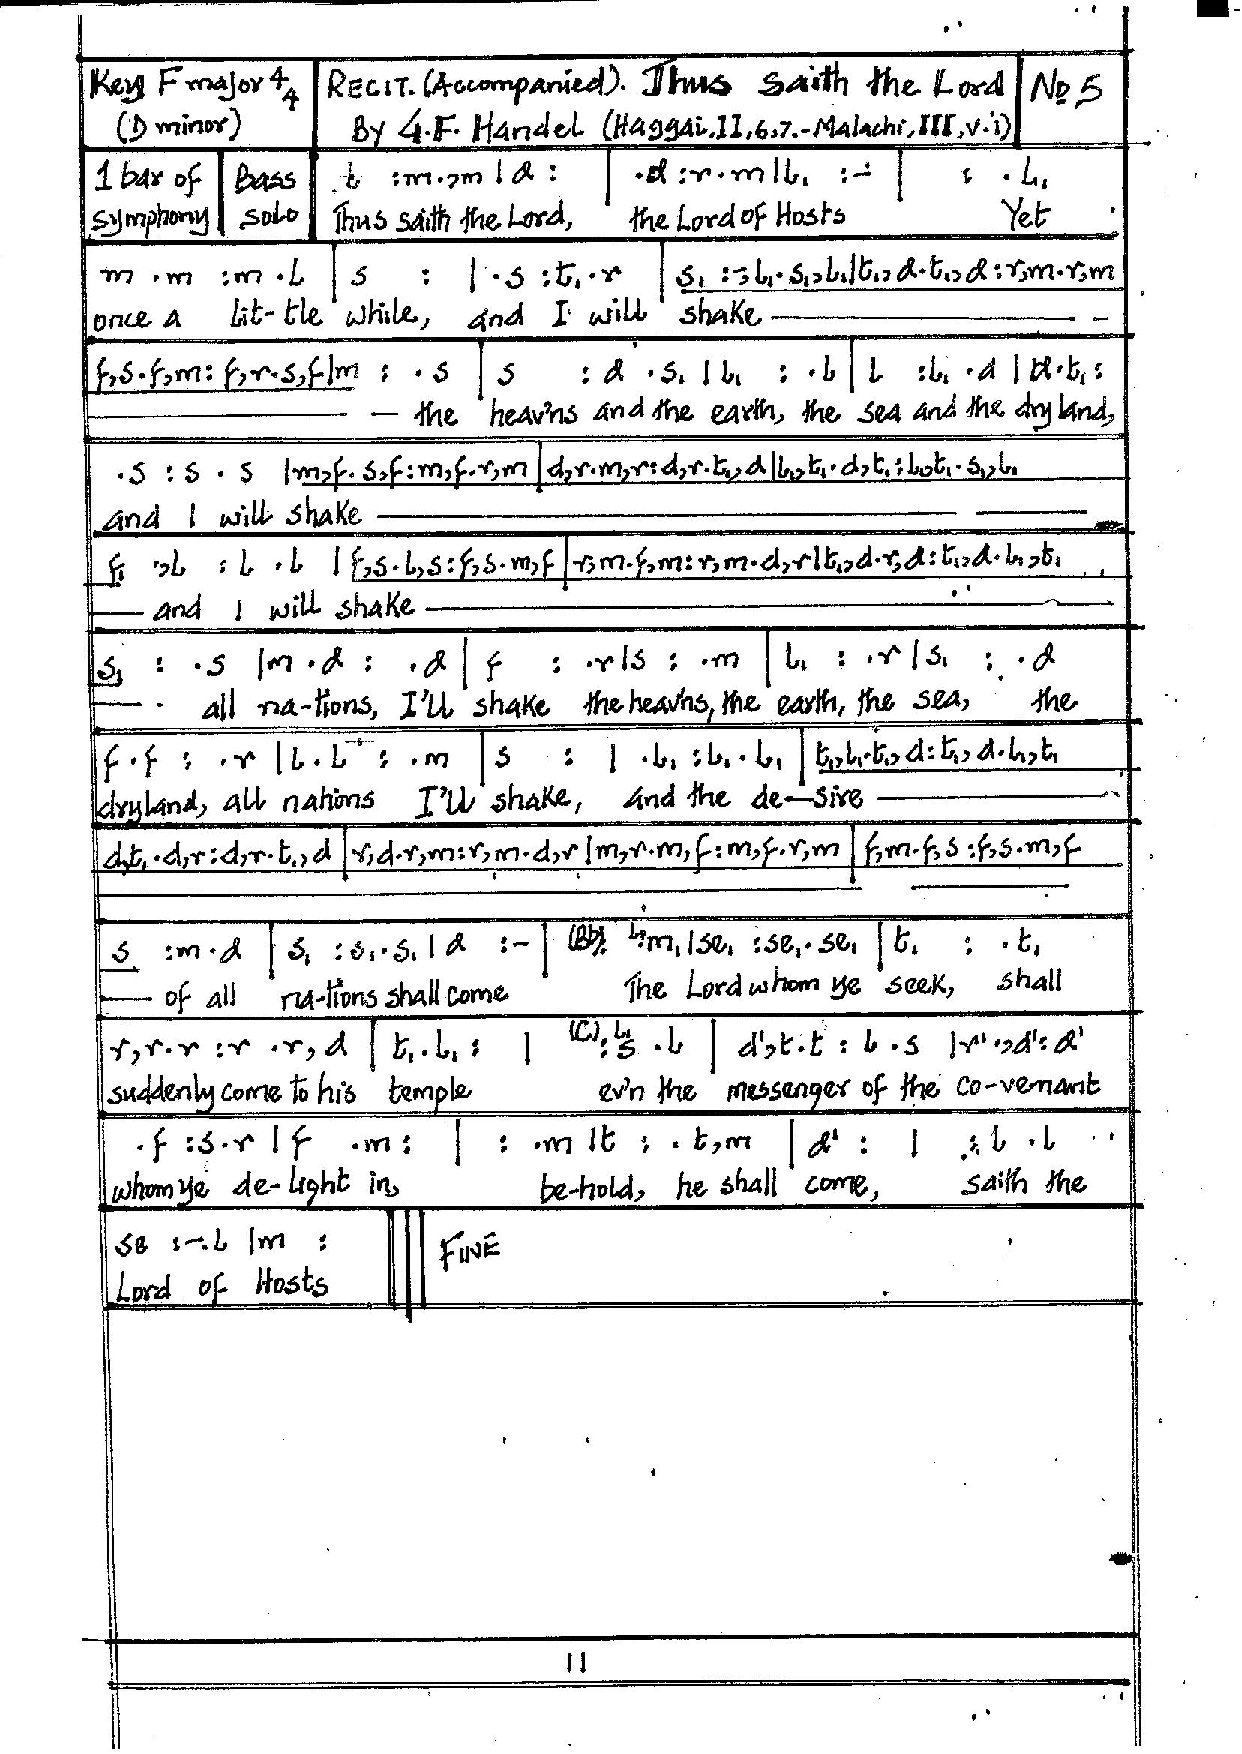 Key F major 4/4 RECIT. (Accompanied). Thus saith the Lord No 5
(D minor) By G.F. Handel (Haggai, II, 6,7. - Malachi, III, v.i)
1 bar of Bass .l :m.,m | d : | .d :r.m | l₁ :- | : .l₁
symphony solo Thus saith the Lord, the Lord of Hosts Yet
m .m :m .l | s : | .s :t₁.r | s₁ :-,l₁.s₁,l₁|t₁,d.t₁,d:r,m.r,m
once a lit-tle while, and I will shake
f,s.f,m:f,r.s,f|m : .s | s :d .s₁ | l₁ : .l | l :l₁ .d | d.t₁:
the heav'ns and the earth, the sea and the dry land,
.s :s .s |m,f.s,f:m,f.r,m|d,r.m,r:d,r.t₁,d|l₁,t₁.d,t₁:l₁,t₁.s₁,l₁
and I will shake
f₁ .,l :l .l | f,s.l,s:f,s.m,f|r,m.f,m:r,m.d,r|t₁,d.r,d:t₁,d.l₁,t₁
and I will shake
s₁ : .s |m .d : .d | f : .r|s : .m | l₁ : .r | s₁ : .d
all na-tions, I'll shake the heav'ns, the earth, the sea, the
f.f : .r | l.l : .m | s : | .l₁ :l₁.l₁ | t₁,l₁.t₁,d:t₁,d.l₁,t₁
dryland, all nations I'll shake, and the de-sire
d,t₁.d,r:d,r.t₁,d|r,d.r,m:r,m.d,r|m,r.m,f:m,f.r,m|f,m.f,s:f,s.m,f
s :m.d | s₁ :s₁.s₁ | d :- | (Bb). l₁:m₁|se₁ :se₁.se₁ | t₁ : .t₁
of all na-tions shall come The Lord whom ye seek, shall
r,r.r :r .r,d | t₁.l₁ : | (C). l₁:s .l | d',t.t :l .s |r'.,d':d'
suddenly come to his temple ev'n the messenger of the co-venant
.f :s.r | f .m : | : .m |t : .t,m | d' : | :l .l
whom ye de-light in, be-hold, he shall come, saith the
se :-.l |m :
Lord of Hosts
FINE
11